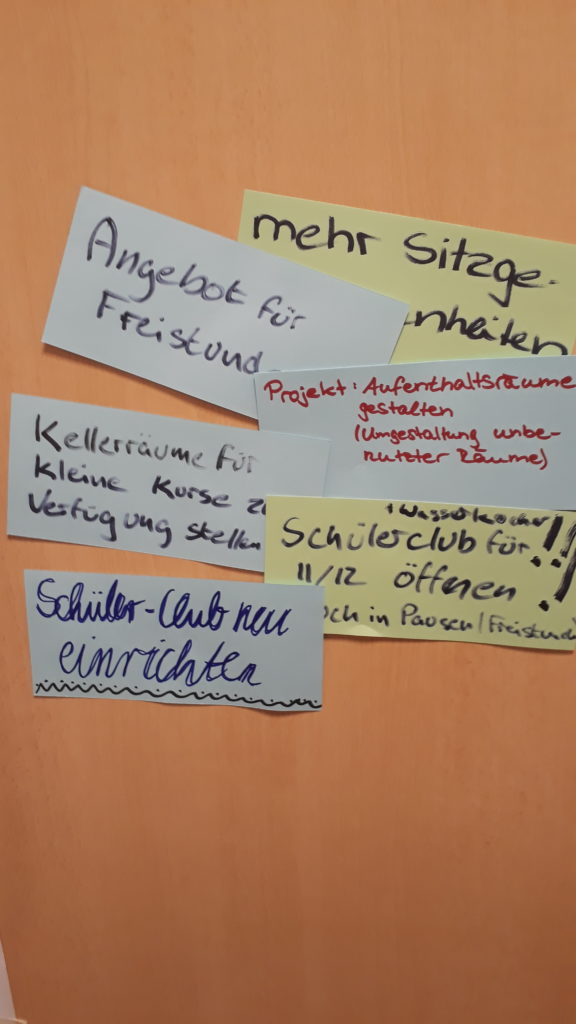 Angebot für
Freistund
mehr Sitzge-
nheiten
Projekt: Aufenthaltsräume
gestalten
(Umgestaltung unbe-
nutzter Räume)
Kellerräume für
kleine Kurse z
Verfügung stellen
+ Wasserkocher
Schülerclub für
11/12 öffnen !!!
och in Pausen/Freistund
Schüler-Club neu
einrichten